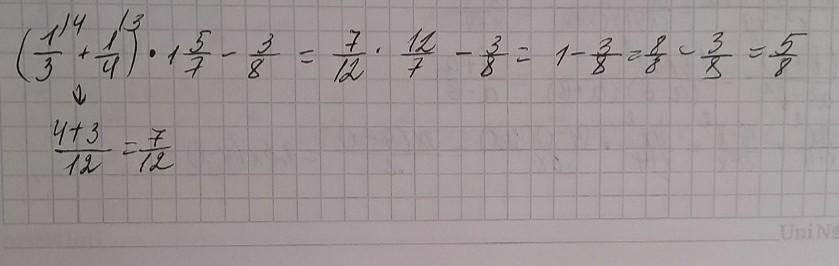 (1/3 ⁾⁴ + 1/4 ⁾³) · 1 5/7 - 3/8 = 7/12 · 12/7 - 3/8 = 1 - 3/8 = 8/8 - 3/8 = 5/8
↓
4+3/12 = 7/12